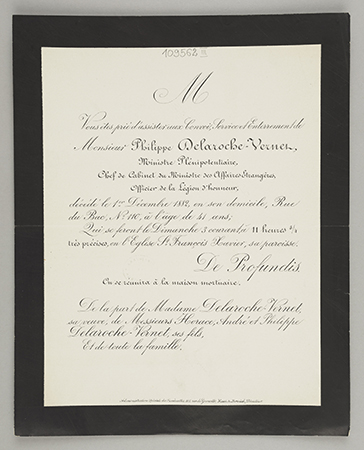 109562
M
Vous êtes prié d'assister aux Convoi, Service et Enterrement de
Monsieur Philippe Delaroche-Vernet,
Ministre Plénipotentiaire,
Chef de Cabinet du Ministre des Affaires Etrangères,
Officier de la Légion d'honneur,
décédé le 1er Décembre 1882, en son domicile, Rue
du Bac, No 110, à l'âge de 41 ans;
Qui se feront le Dimanche 3 courant à 11 heures
très précises, en l'Eglise St François Xavier, sa paroisse.
De Profundis
On se réunira à la maison mortuaire.
De la part de Madame Delaroche-Vernet,
sa veuve, de Messieurs Horace, André et Philippe
Delaroche-Vernet, ses fils,
Et de toute la famille.